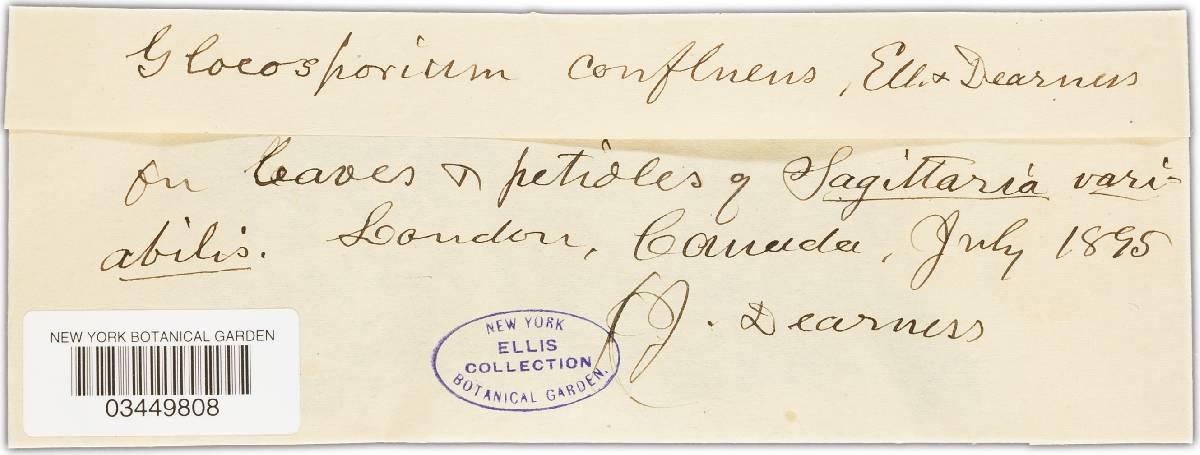 Gloeosporium confluens, Ell. & Dearness
on leaves & petioles of Sagittaria vari-
abilis. London, Canada, July 1895
J. Dearness
NEW YORK BOTANICAL GARDEN
03449808
NEW YORK
ELLIS
COLLECTION
BOTANICAL GARDEN.